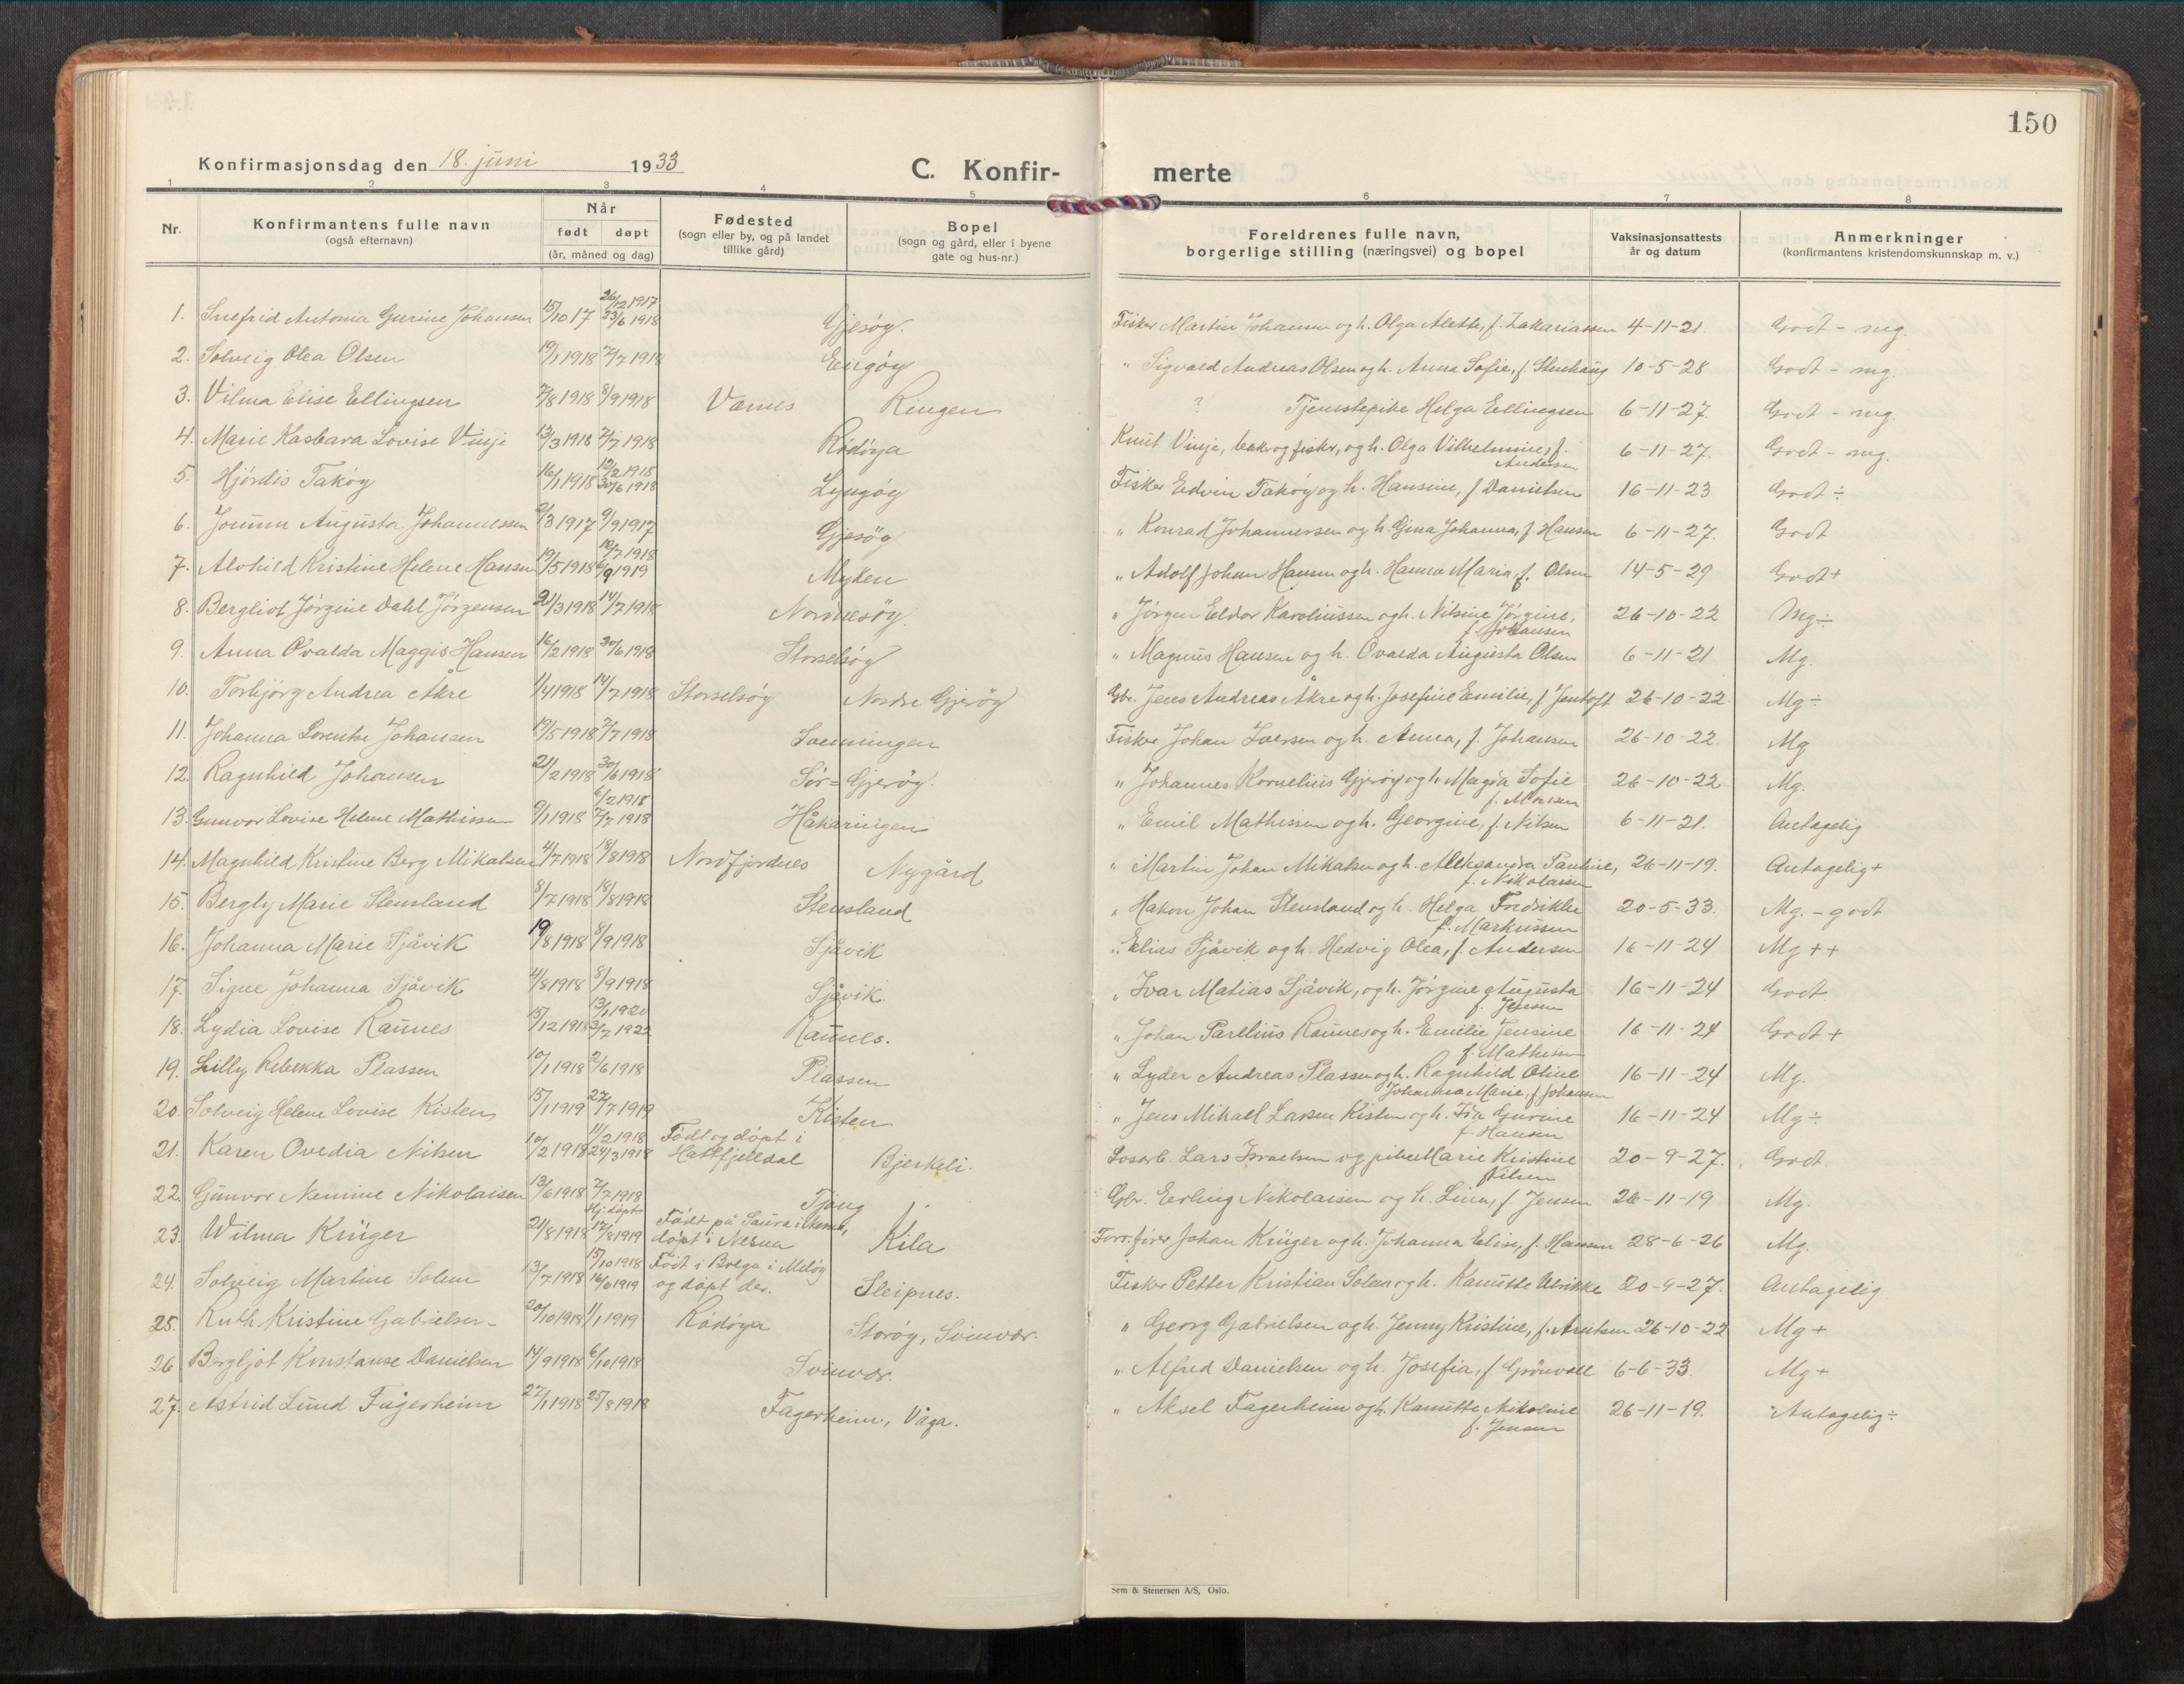 150
Konfirmasjonsdag den 18. juni 1933
C. Konfir-
merte
1 2 3 4 5 6 7 8
Nr.
Konfirmantens fulle navn
(også efternavn)
Når
født døpt
(år, måned og dag)
Fødested
(sogn eller by, og på landet
tillike gård)
Bopel
(sogn og gård, eller i byene
gate og hus-nr.)
Foreldrenes fulle navn,
borgerlige stilling (næringsvei) og bopel
Vaksinasjonsattests
år og datum
Anmerkninger
(konfirmantens kristendomskunnskap m. v.)
26/12 1917
1. Snefrid Antonia Gurine Johansen 15/10 17 23/6 1918 Gjesøy. Fisker Martin Johansen og h. Olga Alette, f. Zakariassen 4-11-21 Godt - mg.
2. Solveig Olea Olsen 19/1 1918 7/7 1918 Engøy " Sigvald Andreas Olsen og h. Anna Sofie, f. Stenhaug 10-5-28 Godt - mg.
3. Vilma Elise Ellingsen 7/8 1918 8/9 1918 Værnes Ringen ? Tjenestepike Helga Ellingsen 6-11-27. Godt - mg.
4. Marie Kasbara Lovise Vinje 13/3 1918 7/7 1918 Rødøya Knut Vinje, bak. og fisker, og h. Olga Vilhelmine, f. Andersen 6-11-27. Godt - mg.
12/2 1918
5. Hjördis Takøy 16/1 1918 30/6 1918 Lyngøy Fisker Edvin Takøy og h. Hansine, f. Danielsen 16-11-23 Godt ÷
6. Jorunn Augusta Johannessen 2/3 1917 9/9 1917 Gjesöy " Konrad Johannessen og h. Gina Johanna, f. Hansen 6-11-27. Godt
10/7 1918
7. Alvhild Kristine Helene Hansen 19/5 1918 6/9 1919 Myken " Adolf Johan Hansen og h. Hanna Maria, f. Olsen 14-5-29 Godt +
8. Bergliot Jörgine Dahl Jörgensen 21/3 1918 14/7 1918 Nordnesöy. " Jörgen Eldor Karoliussen og h. Nilsine Jørgine, f. Johansen 26-10-22 Mg ÷
9. Anna Ovalda Maggis Hansen 16/2 1918 30/6 1918 Storselsöy " Magnus Hansen og h. Ovalda Augusta Olsen 6-11-21 Mg.
10. Torbjörg Andrea Åkre 1/4 1918 14/7 1918 Storselsöy Nordre Gjeröy Gbr. Jens Andreas Åkre og h. Josefine Emilie, f. Jentoft 26-10-22 Mg ÷
11. Johanna Lorentse Johansen 19/5 1918 7/7 1918 Svenningen Fisker Johan Iversen og h. Anna, f. Johansen 26-10-22. Mg
12. Ragnhild Johansen 21/2 1918 30/6 1918 Sör=Gjeröy. " Johannes Kornelius Gjeröy og h. Magda Sofie f. Monsen 26-10-22 Mg.
6/2 1918
13. Gunvor Lovise Helene Mathissen 9/1 1918 7/7 1918 Håkaringen " Emil Mathissen og h. Georgine, f. Nilsen 6-11-21. Antagelig
14. Magnhild Kristine Berg Mikalsen 4/7 1918 18/8 1918 Nordfjordnes Nygård " Martin Johan Mikalsen og h. Aleksandra Pauline, f. Nikolaisen 26-11-19. Antagelig +
15. Bergly Marie Stensland 8/7 1918 18/8 1918 Stensland " Hakon Johan Stensland og h. Helga Fredrikke f. Markussen 20-5-33. Mg. - godt
16. Johanna Marie Sjåvik 19/8 1918 8/9 1918 Sjåvik " Elias Sjåvik og h. Hedvig Olea, f. Andersen 16-11-24 Mg ++
17. Signe Johanna Sjåvik 4/8 1918 8/9 1918 Sjåvik. " Ivar Matias Sjåvik, og h. Jörgine Augusta f. Jensen 16-11-24 Godt
13/1 1920
18. Lydia Lovise Raunes 15/12 1918 2/7 1922 Raunes. " Johan Parelius Raunes og h. Emilie Jensine f. Mathissen 16-11-24 Godt +
19. Lilly Rebekka Plassen 10/1 1918 2/6 1918 Plassen " Lyder Andreas Plassen og h. Ragnhild Oline Johanna Marie, f. Johansen 16-11-24 Mg.
20. Solveig Helene Lovise Kisten 15/1 1919 27/7 1919 Kisten " Jens Mikael Larsen Kisten og h. Ida Gurine f. Hansen 16-11-24 Mg ÷
11/2 1918 Födt og döpt i
21. Karen Ovedia Nilsen 10/2 1918 24/3 1918 Hattfjelldal Bjerkeli. Losarb. Lars Israelsen og pike Marie Kristine Nilsen 20-9-27. Godt
22. Gunvor Nemine Nikolaisen 13/6 1918 7/7 1918 Tjong Gbr. Erling Nikolaisen og h. Lina, f. Jensen 26-11-19 Mg.
Hj. döpt Födt på Saura i Nesna,
23. Wilma Krüger 21/8 1918 17/8 1919 döpt i Nesna Kila Forr.fører Johan Krüger og h. Johanna Elise, f. Hansen 28-6-26 Mg.
15/10 1918 Födt i Bolga i Melöy
24. Solveig Martine Solem 13/7 1918 16/6 1919 og döpt der. Sleipnes. Fisker Petter Kristian Solem og h. Kanutte Ulrikke 20-9-27. Antagelig
25. Ruth Kristine Gabrielsen 20/10 1918 1/1 1919 Rödöya Storöy, Svinvær. " Georg Gabrielsen og h. Jenny Kristine, f. Arntsen 26-10-22 Mg +
26 Bergljot Konstanse Danielsen 14/9 1918 6/10 1918 Svinvær. " Alfred Danielsen og h. Josefia, f. Grönvoll 6-6-33. Mg +
27. Astrid Lund Fagerheim 27/1 1918 25/8 1918 Fagerheim, Våga. " Aksel Fagerheim og h. Kanutte Nikoline f. Jensen 26-11-19. Antagelig ÷
Sem & Stenersen A/S, Oslo.